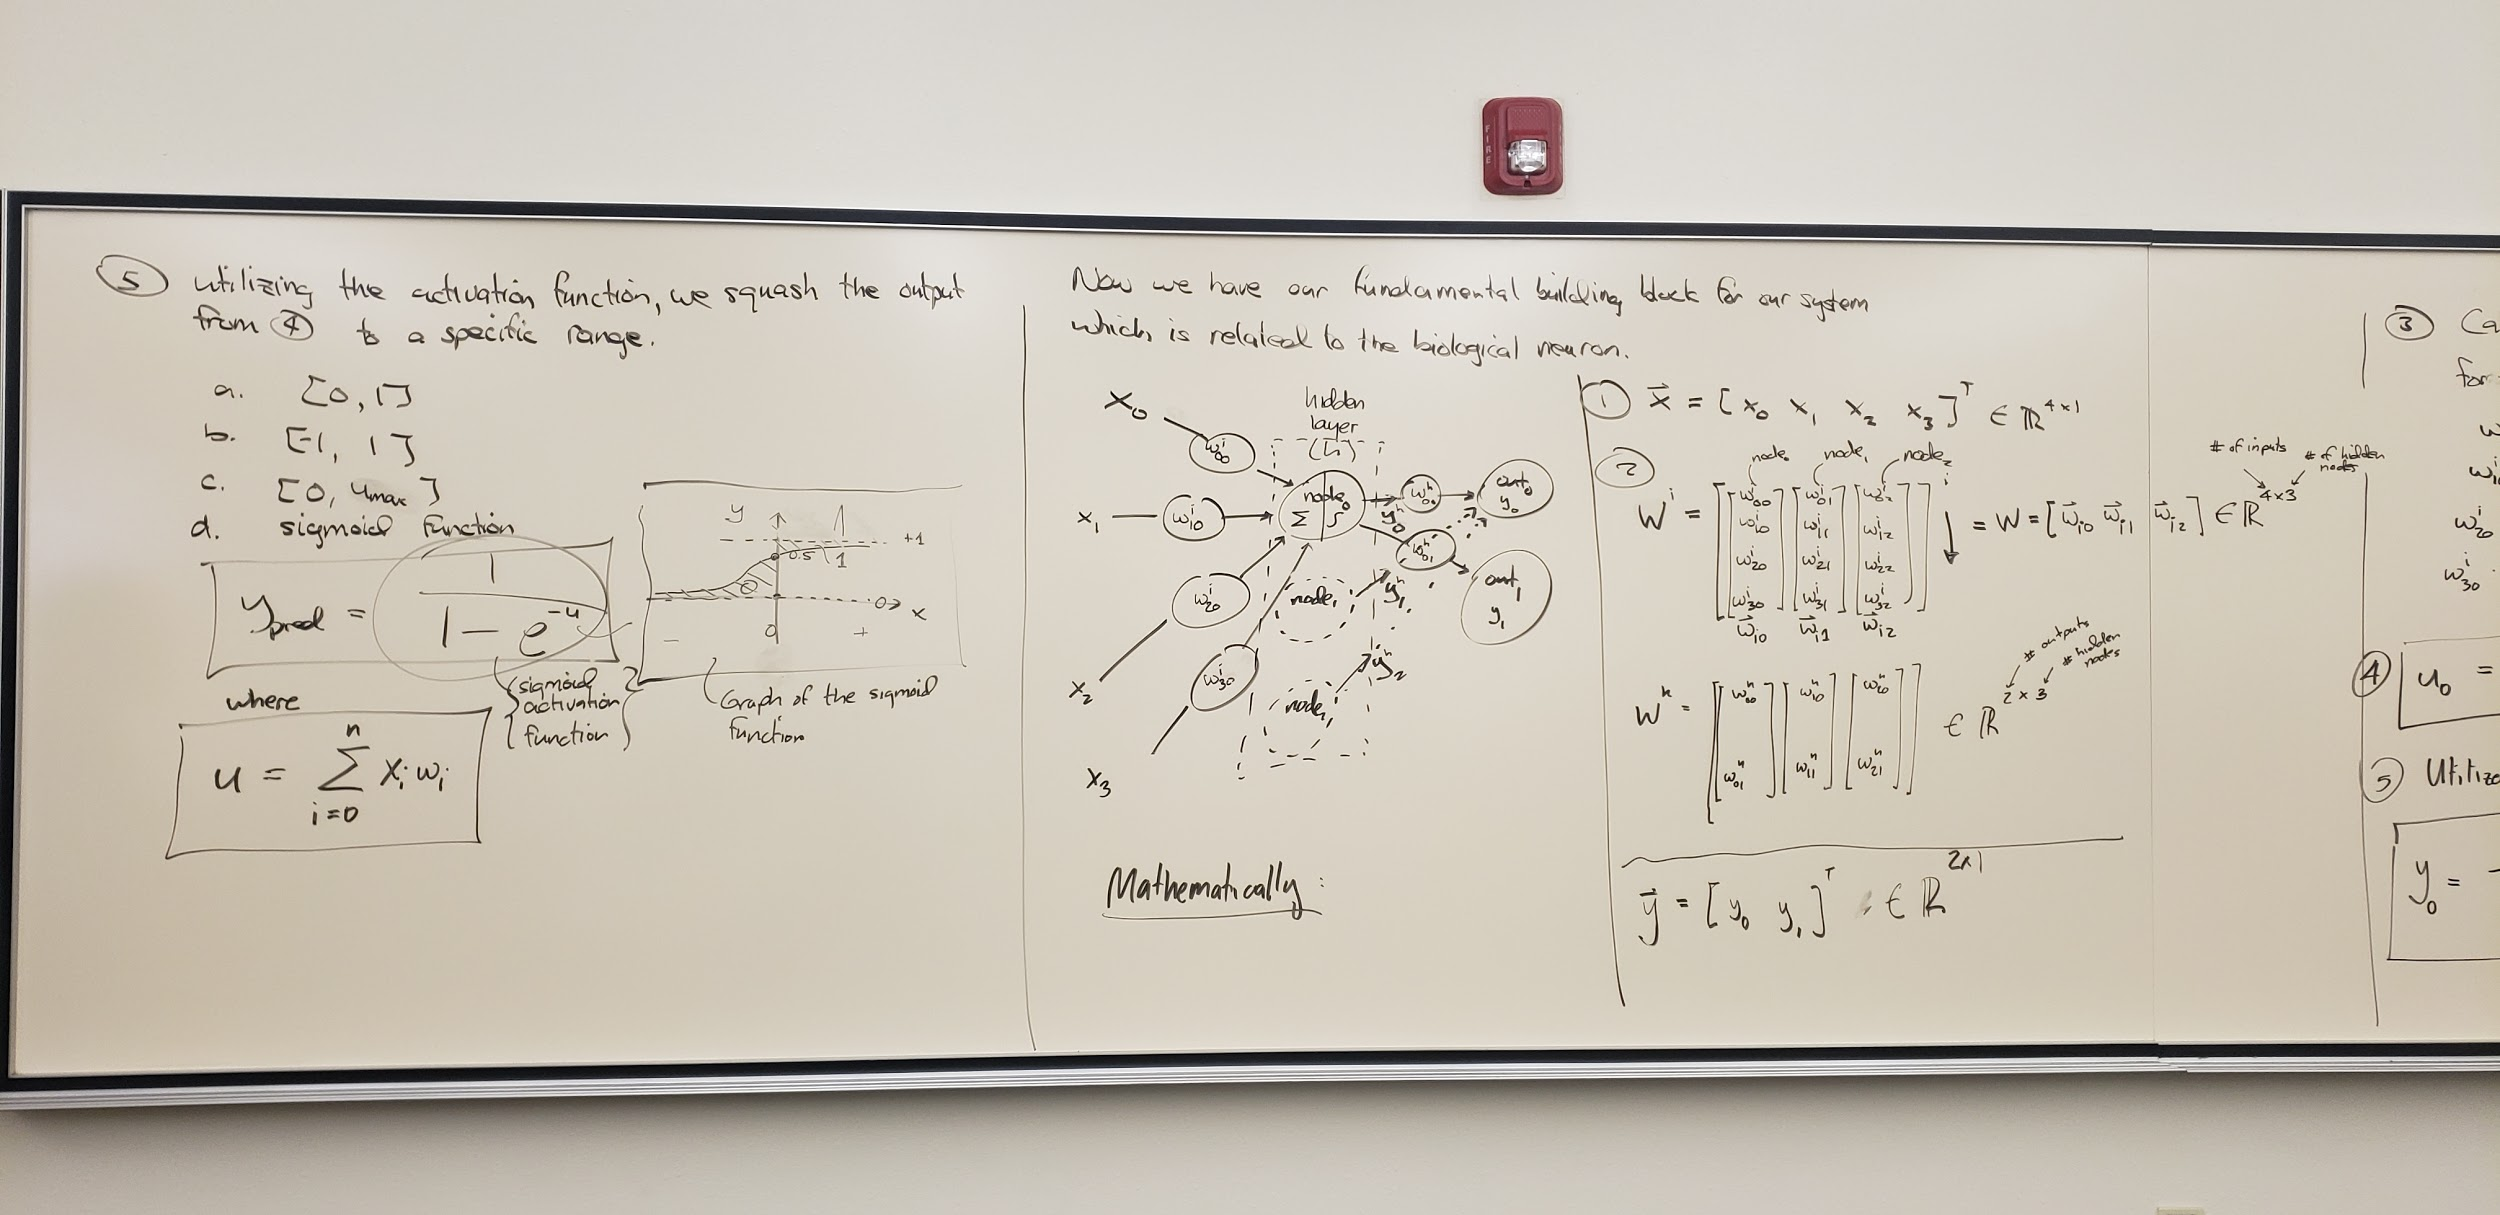 FIRE
⑤ utilizing the activation function, we squash the output
from ④ to a specific range.
a. [0, 1]
b. [-1, 1]
c. [0, umax]
d. sigmoid function
ypred = 1 / (1 - e^-u)
{sigmoid
activation
function}
where
u = Σ_{i=0}^{n} x_i w_i
y
+1
0.5
1
0
x
-
0
+
Graph of the sigmoid
function
Now we have our fundamental building block for our system
which is related to the biological neuron.
hidden
layer
(h)
x_0
w^i_00
x_1
w^i_10
x_2
w^i_20
x_3
w^i_30
node_0
Σ ∫
y^h_0
w^h_00
out_0
y_0
w^h_01
out_1
y_1
node_1
y^h_1
node_1
y^h_2
Mathematically:
① x⃗ = [x_0 x_1 x_2 x_3]^T ∈ ℝ^{4x1}
②
node_0 node_1 node_2
W^i = [[w^i_00 w^i_10 w^i_20 w^i_30] [w^i_01 w^i_11 w^i_21 w^i_31] [w^i_02 w^i_12 w^i_22 w^i_32]]^i = W = [w⃗_i0 w⃗_i1 w⃗_i2] ∈ ℝ^{4x3}
w⃗_i0 w⃗_i1 w⃗_i2
# of inputs
# of hidden
nodes
W^h = [[w^h_00 w^h_01] [w^h_10 w^h_11] [w^h_20 w^h_21]] ∈ ℝ^{2x3}
# outputs
# hidden
nodes
y⃗ = [y_0 y_1]^T ∈ ℝ^{2x1}
③ Ca
for
w^i_20
w^i_30
④ u_0 =
⑤ Utilize
y_0 =